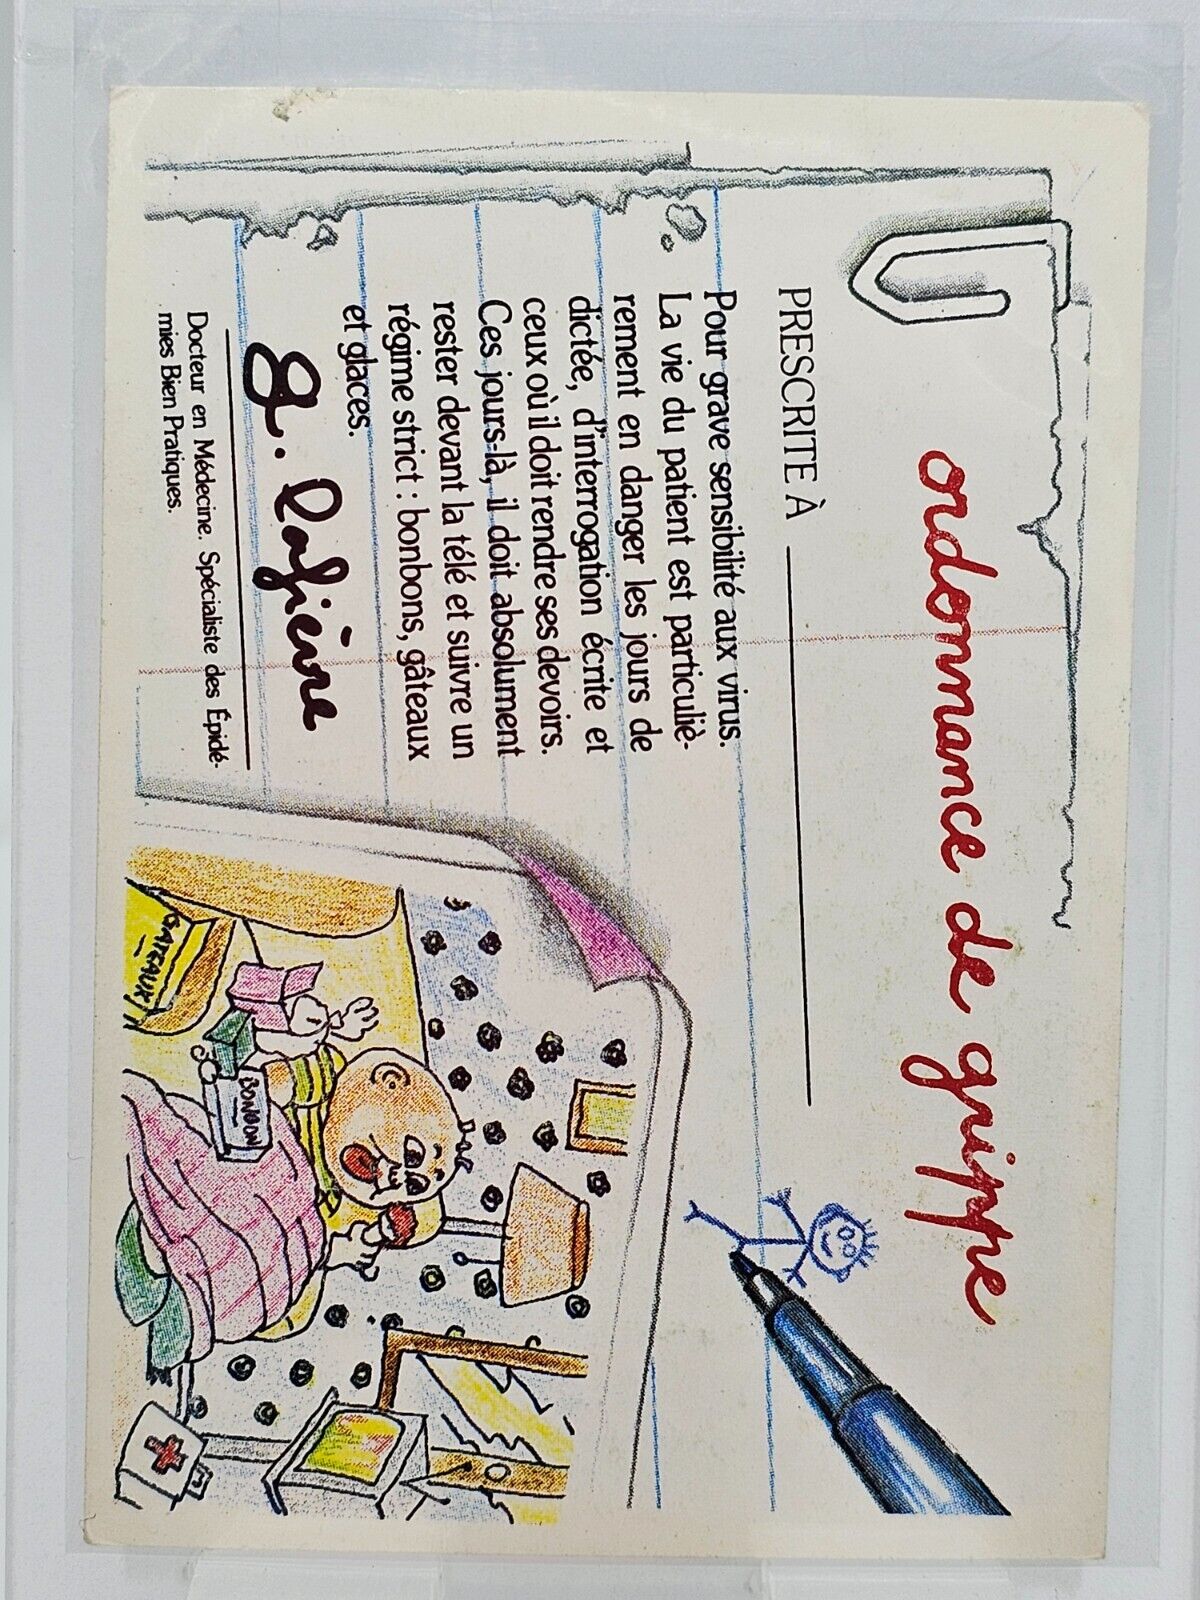 ordonnance de grippe
PRESCRITE À
Pour grave sensibilité aux virus.
La vie du patient est particuliè-
rement en danger les jours de
dictée, d'interrogation écrite et
ceux où il doit rendre ses devoirs.
Ces jours-là, il doit absolument
rester devant la télé et suivre un
régime strict : bonbons, gâteaux
et glaces.
g. lafièvre
Docteur en Médecine. Spécialiste des Épidé-
mies Bien Pratiques.
GATEAUX
BONBON